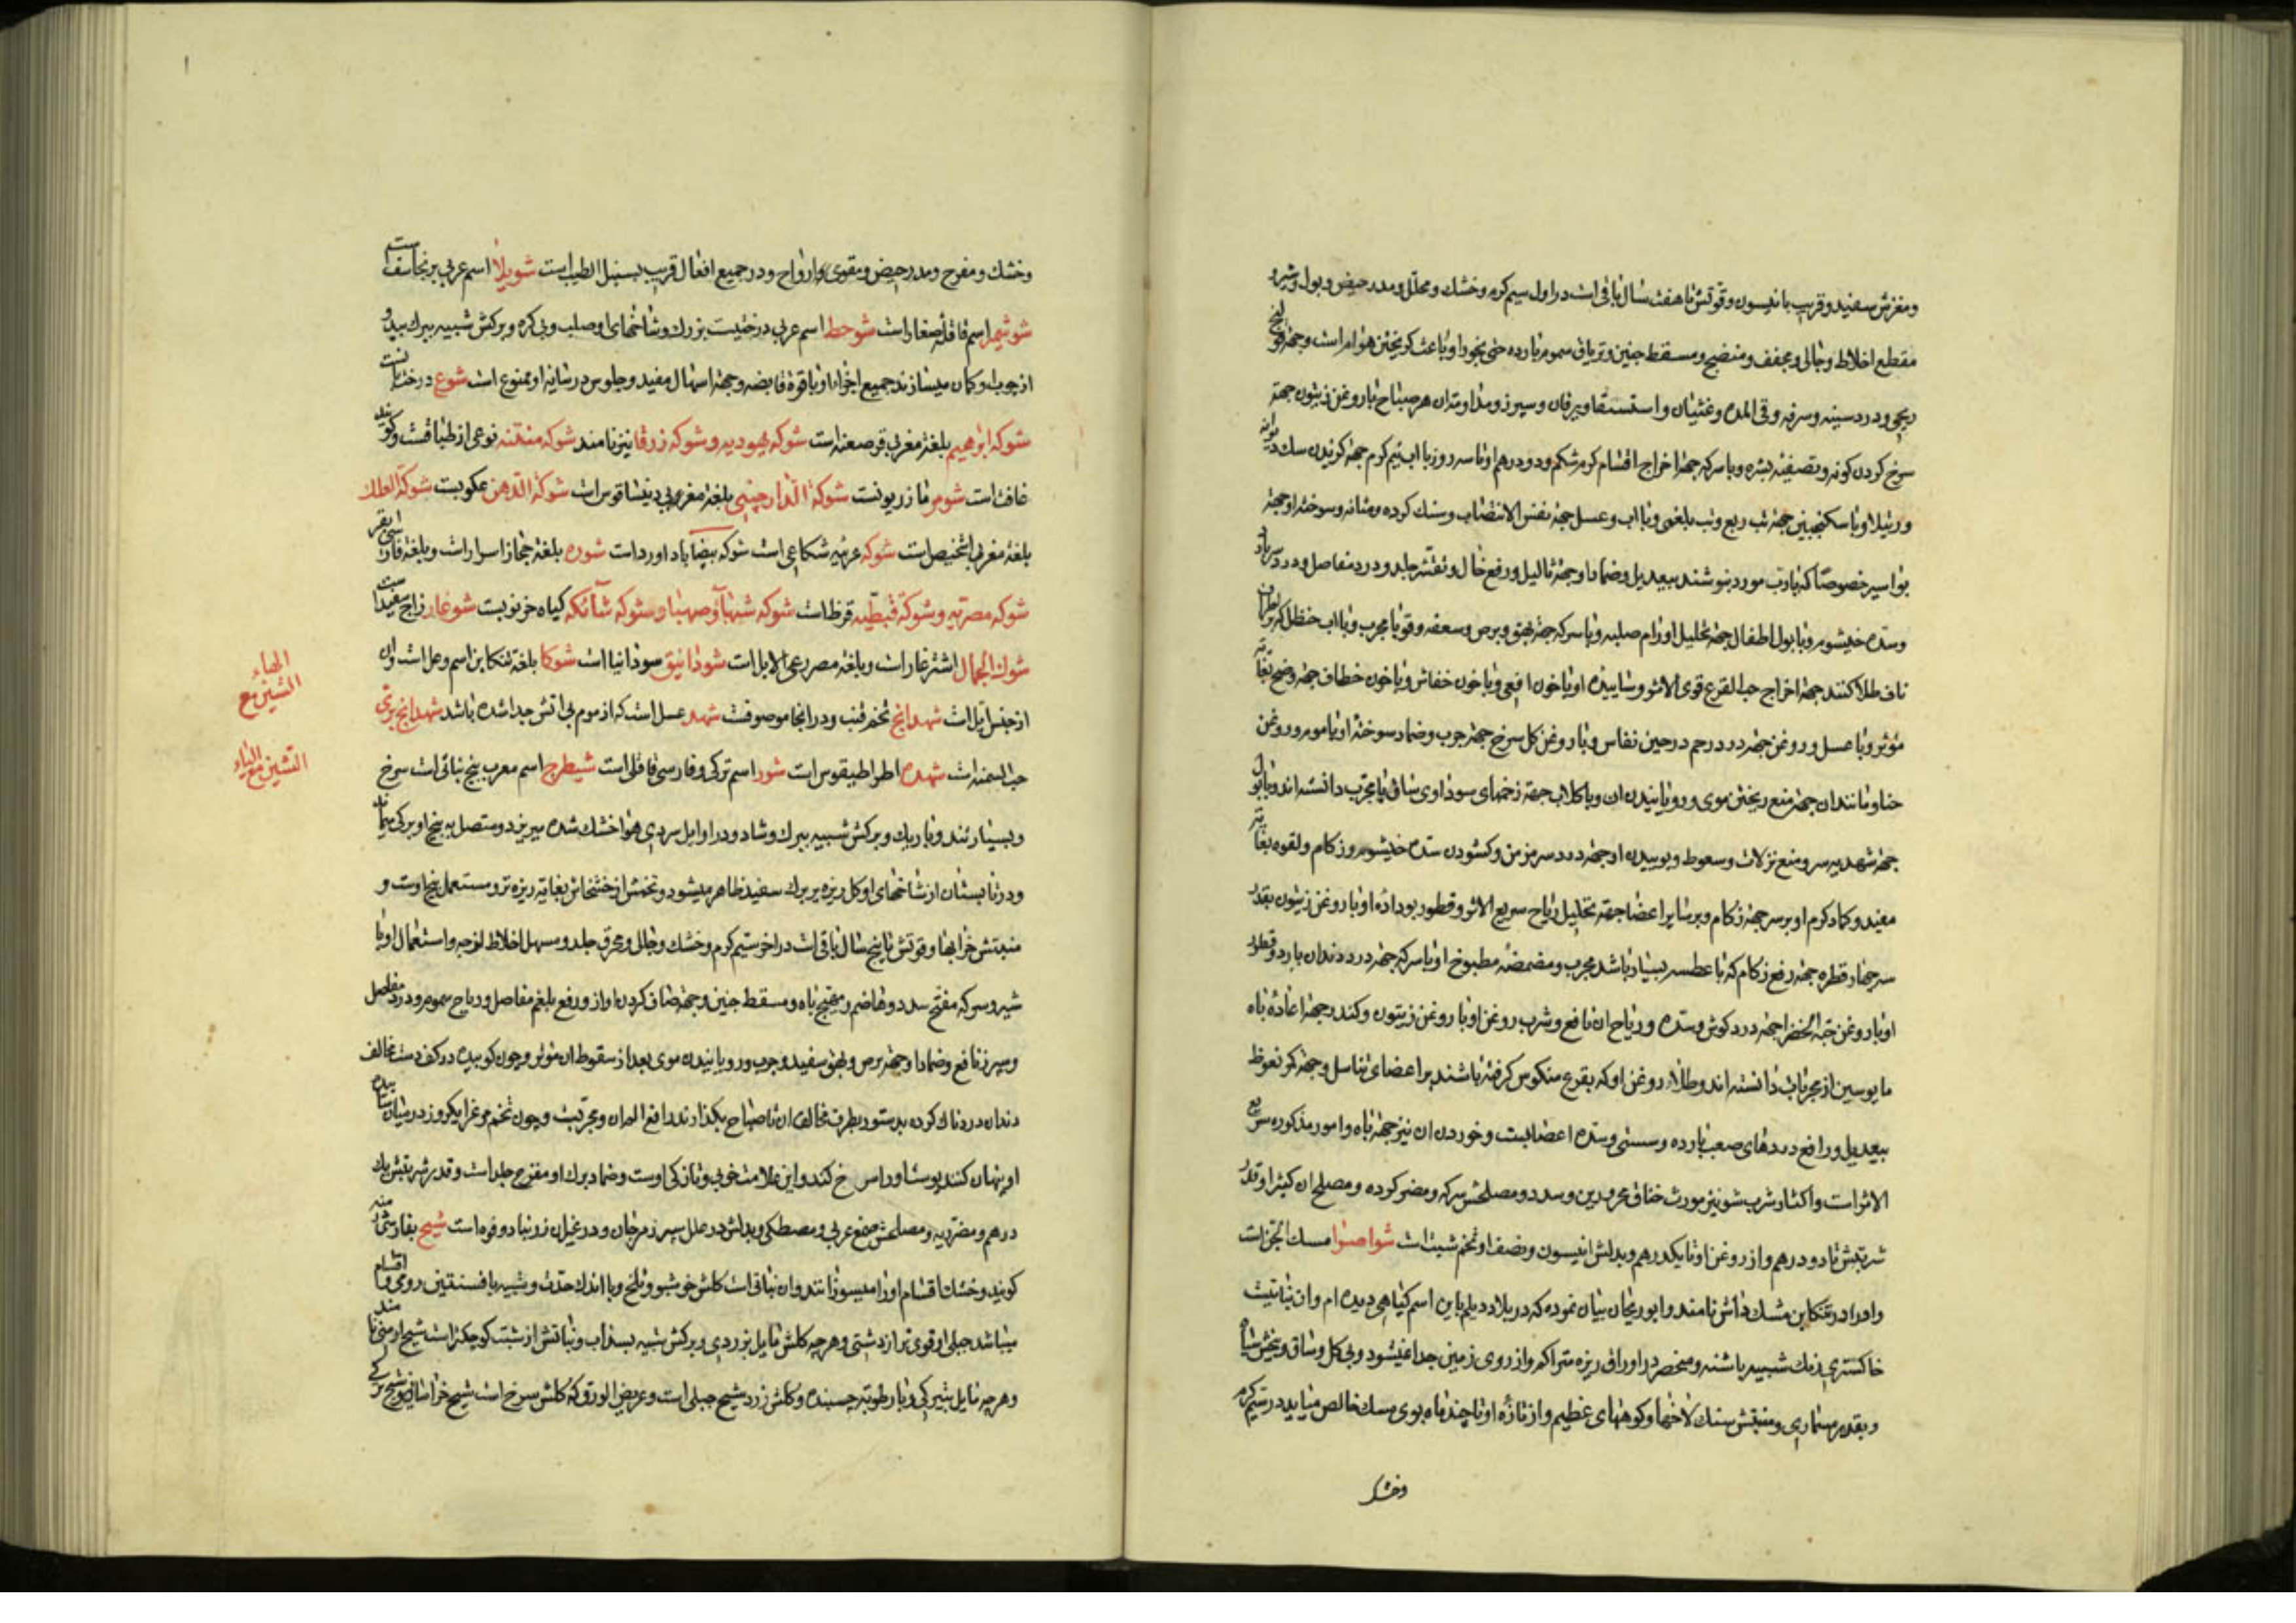 ومغزش سفید و قریب بانیسون و قوتش تا هفت سال باقی است در اول سیم کرم وخشك ومحلل ومدر حیض وبول وشیر و
مقطع اخلاط وجالی ومجفف ومنضج ومسقط جنین وتریاق سموم بارده حتی بخور او باعث کریختن هوام است وجهة قولنج
ریحی ودرد سینه وسرفه وقی المده وغثیان واستسقا ویرقان وسپرز ومداومت ان هر صباح با روغن زیتون جهة
سرخ کردن کونه وتصفیه بشره وبا سرکه جهة اخراج اقسام کرم شکم ودو درهم او تا سه روز با اب نیم کرم جهة کزیدن سك دیوانه
ورتیلا وبا سکنجبین جهة تب ربع وتب بلغمی وبا اب وعسل جهة نفس الانتصاب وسنك کرده ومثانه وسوخته او جهة
بواسیر خصوصا که با رب مورد بنوشند بیعدیل وضماد او جهة ثالیل ورفع خال وتقشر جلد ودرد مفاصل ودرد سر بارد
وسده خیشوم وبا بول اطفال جهة تحلیل اورام صلبه وبا سرکه جهة بهق وبرص وسعفه وقوبا مجرب وبا اب حنظل که بر اطراف
ناف طلا کنند جهة اخراج حب القرع قوی الاثر وساییده او با خون افعی وبا خون خفاش وبا خون خطاف جهة وضح بغایة
مؤثر وبا عسل وروغن جهة درد رحم در حین نفاس وبا روغن کل سرخ جهة جرب وضماد سوخته او با موم وروغن
حنا ومانند ان جهة منع ریختن موی ورویانیدن ان وبا کلاب جهة زخمهای سوداوی ساق پا مجرب دانسته اند وبا بول
جهة شهدیه سر ومنع نزلات وسعوط وبوییدن او جهة درد سر مزمن وکشودن سده خیشوم وزکام ولقوه بغایة
مفید وکماد کرم او بر سر جهة زکام وبر سایر اعضا جهة تحلیل ریاح سریع الاثر وقطور بو داده او با روغن زیتون بقدر
سه چهار قطره جهة رفع زکام که با عطسه بسیار باشد مجرب ومضمضه مطبوخ او با سرکه جهة درد دندان بارد وقطور
او با روغن حبة الخضرا جهة درد کوش وسده وریاح ان نافع وشرب روغن او با روغن زیتون وکندر جهة اعاده باه
مایوسین از مجربات دانسته اند وطلاء روغن او که بقرع منکوس کرفته باشند بر اعضای تناسل وجهة کر نعوظ
بیعدیل ورافع دردهای صعب بارده وسستی وسده اعضا است وخوردن ان نیز جهة باه وامور مذکوره سریع
الاثر است واکثار شرب شونیز مورث خناق محرورین وسدد ومصلحش سرکه ومضر کرده ومصلح ان کثیرا وقدر
شربتش تا دو درهم واز روغن او تا یکدرهم وبدلش انیسون ونصف او تخم شبت است شواصنوا مسك الجن است
واو را در تنکابن مشك داش نامند وابوریحان بیان نموده که در بلاد دیلم باین اسم کیاهی دیده ام وان نباتیست
خاکستری رنك شبیه باشنه ومنحصر در اوراق ریزه متراکم واز روی زمین جدا نمیشود وبی کل وساق وبیخش سیاه
وبقدر مسماری ومنبتش سنك لاخها وکوههای عظیم واز تازه او تا چند ماه بوی مسك خالص میاید در سیم کرم
وخشك
وخشك ومفرح ومدر حیض ومقوی ارواح ودر جمیع افعال قریب بسنبل الطیب است شویلا اسم عربی برنجاسف است
شوشمیر اسم قاقله صغار است شوحط اسم عربی درختیست بزرك وشاخهای او صلب وبی کره وبرکش شبیه ببرك بید و
از چوب او کمان میسازند جمیع اجزاء او با قوة قابضه وجهة اسهال مفید وجلوس در سایه او ممنوع است شوع درخت بانست
شوکه ابراهیم بلغة مغربی قرصعنه است شوکه یهودیه وشوکه زرقا نیز نامند شوکه منتنه نوعی از طباقست وکویند
غافث است شوم مازریونست شوکة الدارجینی بلغة مغربی دیفساقوس است شوکة الدهن عکوبست شوکة العلك
بلغة مغربی اشخیص است شوکه عربیه شکاعی است شوکه بیضا باد اورد است شوره بلغة حجاز اسرار است وبلغة فارسی بقر
شوکه مصریه وشوکة قبطیه قرظ است شوکه شهبا وصهبا وشوکه شائکه کیاه خرنوبست شوغار زاج سفید است
شوك الجمال اشترغار است وبلغة مصر رعی الابل است شوذانیق سوذانیا است شوکا بلغة تنکابن اسم وعل است وان
از جنس ایل است شهدانج تخم قنب ودر انجا موصوفست شهد عسل است که از موم بی اتش جدا شده باشد شهدانج بری
حب السمنه است شهده اطراطیقوس است شور اسم ترکی وفارسی قاقلی است شیطرج اسم معرب بیخ نباتی است سرخ
وبسیار تند وباریك وبرکش شبیه ببرك وشاد ودر اوایل سردی هوا خشك شده میریزد ومتصل به بیخ او برکی میماند
ودر تابستان از شاخهای او کل ریزه بر برك سفید ظاهر میشود وتخمش از خشخاش بغایة ریزه تر ومستعمل بیخ اوست و
منبتش خرابها وقوتش تا پنج سال باقی است در اخر سیم کرم وخشك وجالی ومحرق جلد ومسهل اخلاط لزجه واستعمال او با
شیر وسرکه مفتح سدد وهاضم ومهیج باه ومسقط جنین وجهة صاف کردن اواز ورفع بلغم مفاصل وریاح سموم ودرد مفاصل
وسپرز نافع وضماد او جهة برص وبهق سفید وجرب ورویانیدن موی بعد از سقوط ان مؤثر وچون کوبیده در کف دست مخالف
دندان دردناك کرده بدستور بطرف مخالف ان تا صباح بکذارند رافع الم ان ومجربست وچون تخم مرغ را یکروز در میان ساییده
او پنهان کنند پوست او را سرخ کند واین علامت خوبی وتازکی اوست وضماد برك او مفرح جلد است وقدر شربتش یك
درهم ومضر ریه ومصلحش صمغ عربی ومصطکی وبدلش در علل سپرز مرجان ودر غیر ان زرنباد وفوه است شیح بفارسی درمنه
کویند وخشك اقسام او را میسوزانند وان نباتی است کلش خوشبو وتلخ وبا اندك حدت وشبیه بافسنتین رومی واقسام
میباشد جبلی او قوی تر از دشتی وهر چه کلش مایل بزردی وبرکش شبیه بسداب ونباتش از شبت کوچکتر است شیح ارمنی نامند
وهر چه مایل بتیرکی وبا رطوبة چسبنده وکلش زرد شیح جبلی است وعریض الورق که کلش سرخ است شیح خراسانی وشیح ترکی
الهاء
الشین مع
الشین مع الیاء